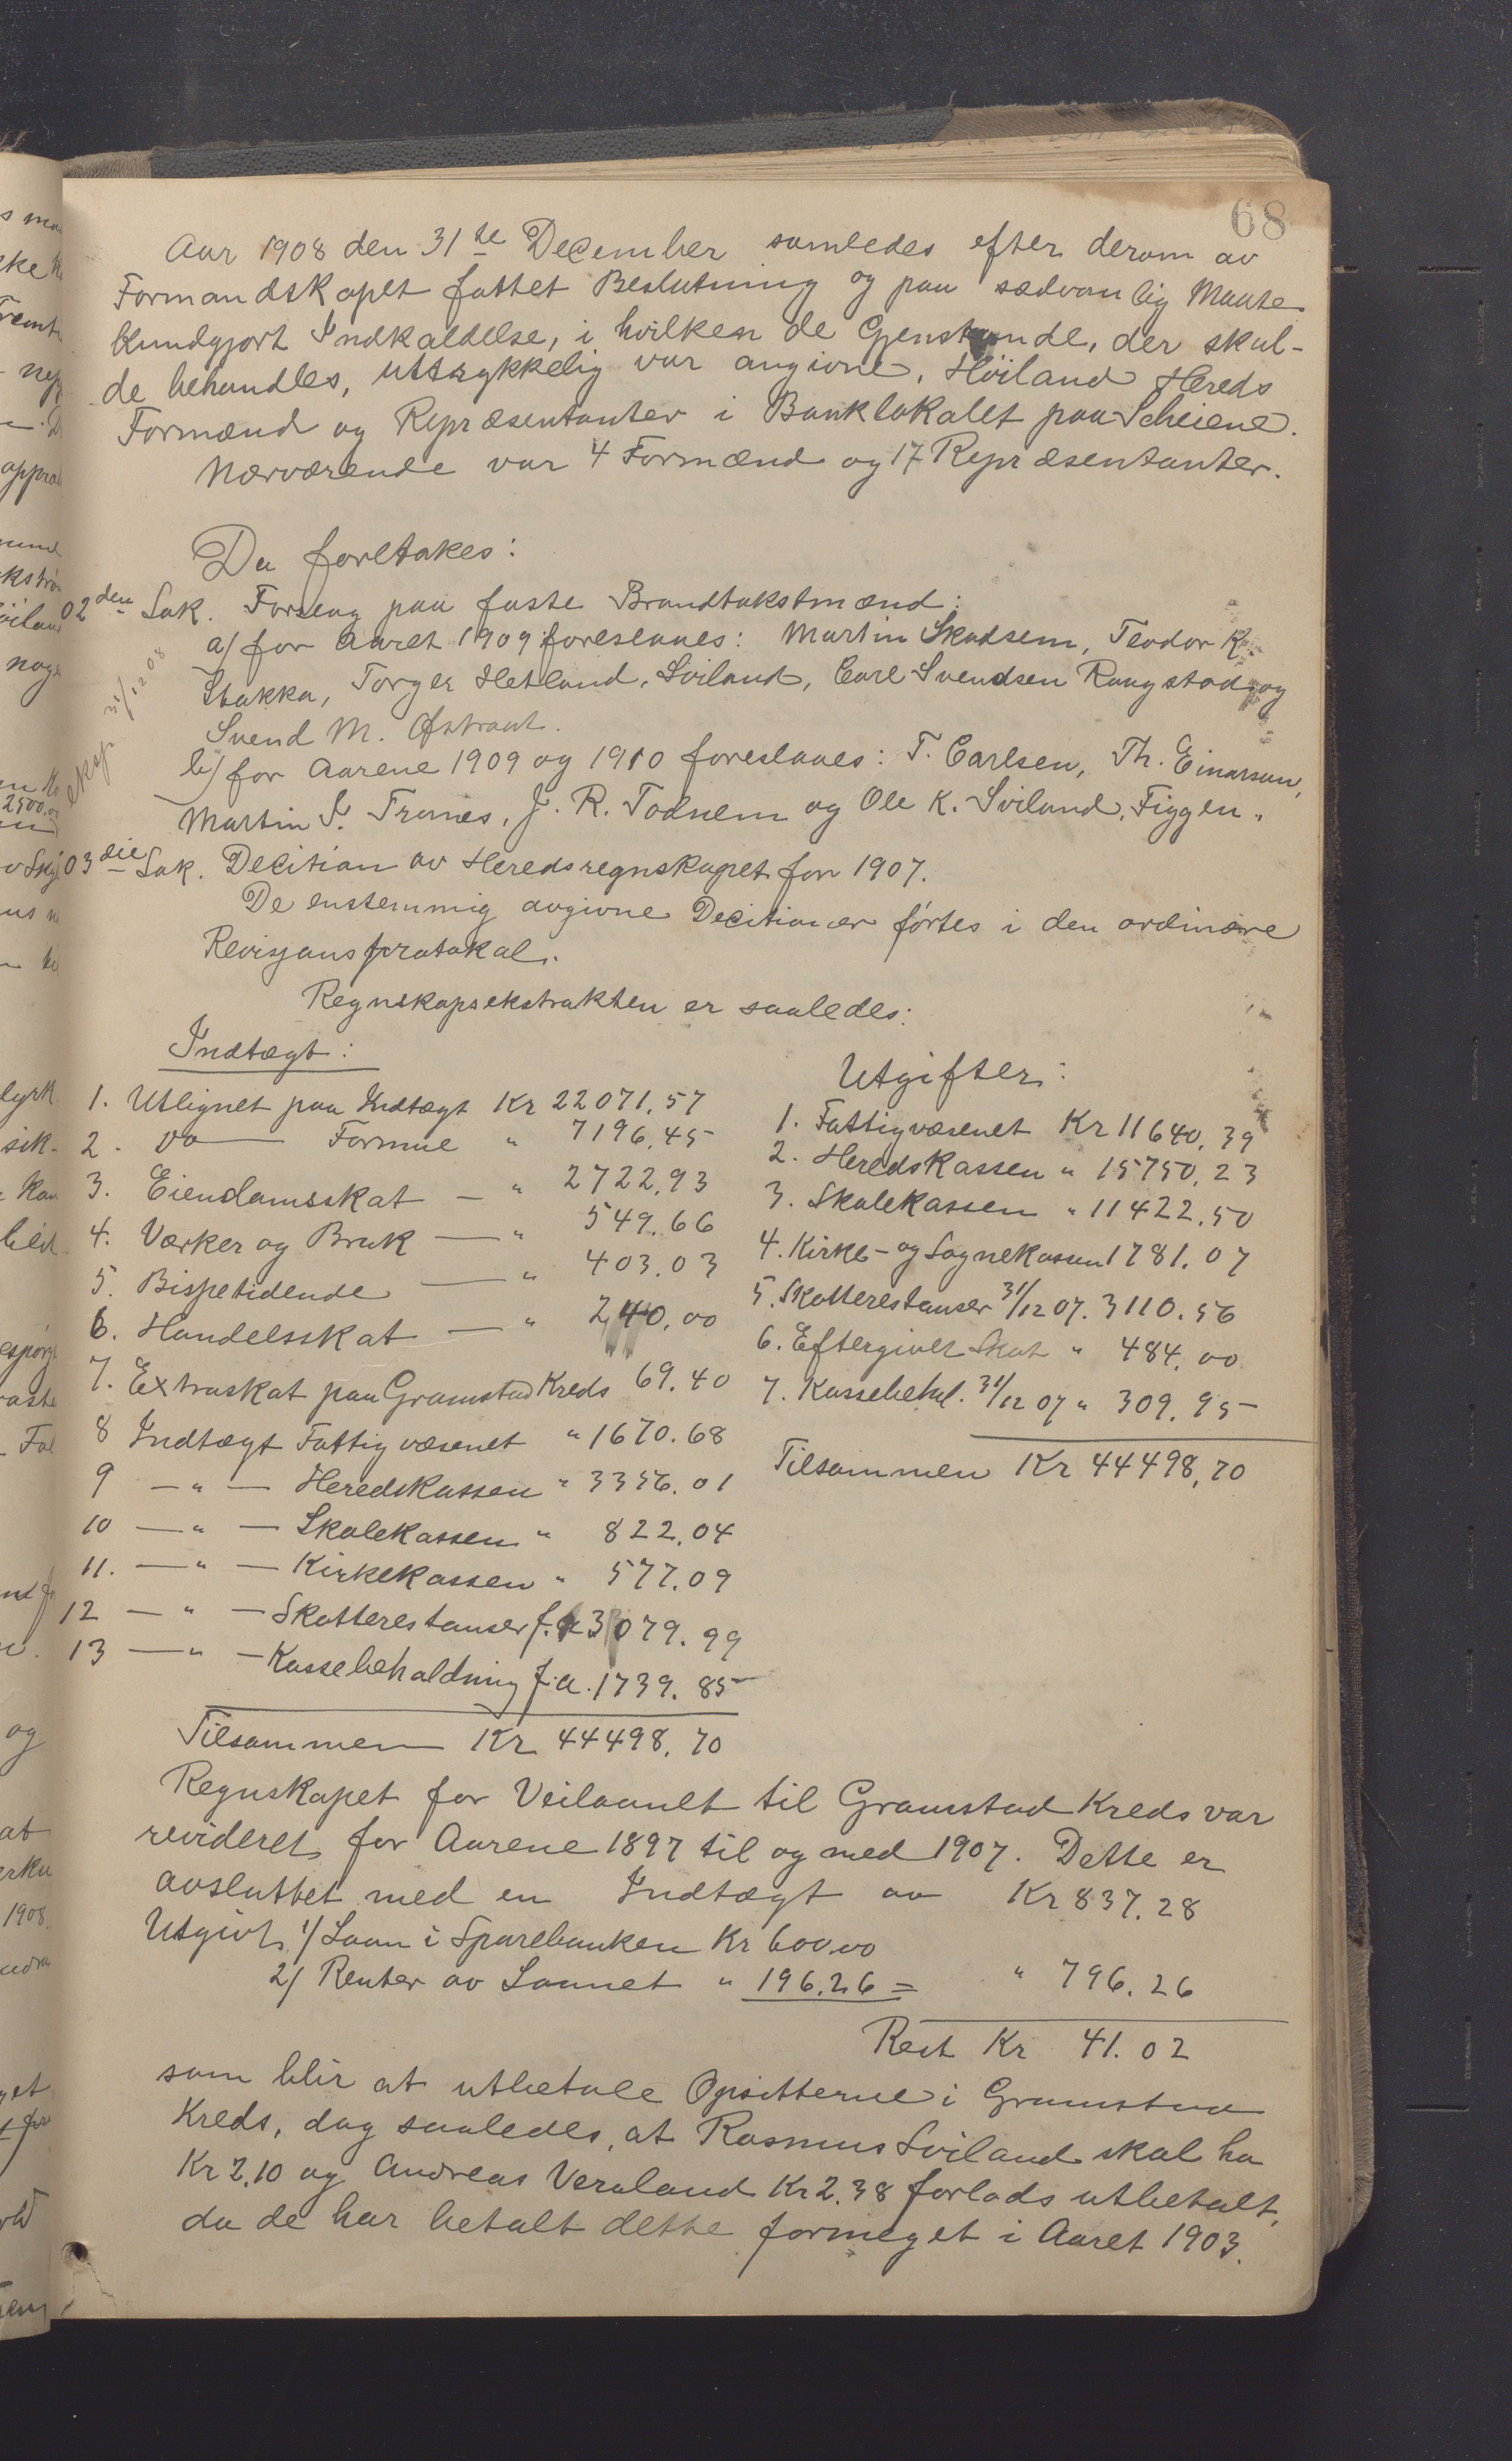 68
Aar 1908 den 31te December samledes efter derom av
Formandskapet fattet Beslutning og paa sædvanlig Maate
kundgjort Indkaldelse, i hvilken de Gjenstande, der skul-
de behandles, uttrykkelig var angivne, Höiland Hereds
Formænd og Repræsentanter i Banklokalet paa Scheiene.
Nærværende var 4 Formænd og 17 Repræsentanter.
Da foretakes:
02den Sak. Forslag paa faste Brandtakstmænd:
a) for Aaret 1909 foreslaaes: Martin Skadsem, Teodor K.
Stakka, Torger Hetland, Sviland, Carl Svendsen Raugstad og
Svend M. Østraat.
eksp 31/12 08
b) for Aarene 1909 og 1910 foreslaaes: T. Carlsen, Th. Einarsen,
Martin S. Tranes, J. R. Todnem og Ole K. Sviland, Figgen.
03die Sak. Decition av Heredsregnskapet for 1907.
De enstemmig avgivne Decitioner førtes i den ordinære
Revisjonsprotokol.
Regnskapsekstrakten er saaledes:
Indtægt:
1. Utlignet paa Indtægt Kr 22071,57
2. Do — Formue " 7196,45
3. Eiendomsskat — " 2722,93
4. Værker og Bruk — " 549.66
5. Bispetidende — " 403.03
6. Handelsskat — " 240,00
7. Extraskat paa Gramstad Kreds 69.40
8 Indtægt Fattigvæsenet " 1670.68
9 — " — Heredskassen " 3356.01
10 — " — Skolekassen " 822.04
11. — " — Kirkekassen " 577.09
12 — " — Skatterestanser f.a 3079.99
13 — " — Kassebeholdning f.a. 1739.85
Tilsammen Kr 44498.70
Utgifter:
1. Fattigvæsenet Kr 11640,39
2. Heredskassen " 15750,23
3. Skolekassen " 11422.50
4. Kirke- og Sognekassen 1781.07
5. Skatterestanser 31/12 07. 3110.56
6. Eftergivet Skat " 484.00
7. Kassebehol. 31/12 07 " 309.95
Tilsammen Kr 44498,70
Regnskapet for Veilaanet til Gramstad Kreds var
revideret for Aarene 1897 til og med 1907. Dette er
avsluttet med en Indtægt av Kr 837.28
Utgivt 1/ Laan i Sparebanken Kr 600.00
2/ Renter av Laanet " 196.26 = " 796.26
Rest Kr 41.02
som blir at utbetale Opsitterne i Gramstad
Kreds, dog saaledes, at Rasmus Sviland skal ha
Kr 2.10 og Andreas Veraland Kr 2.38 forlods utbetalt,
da de har betalt dette formeget i Aaret 1903.